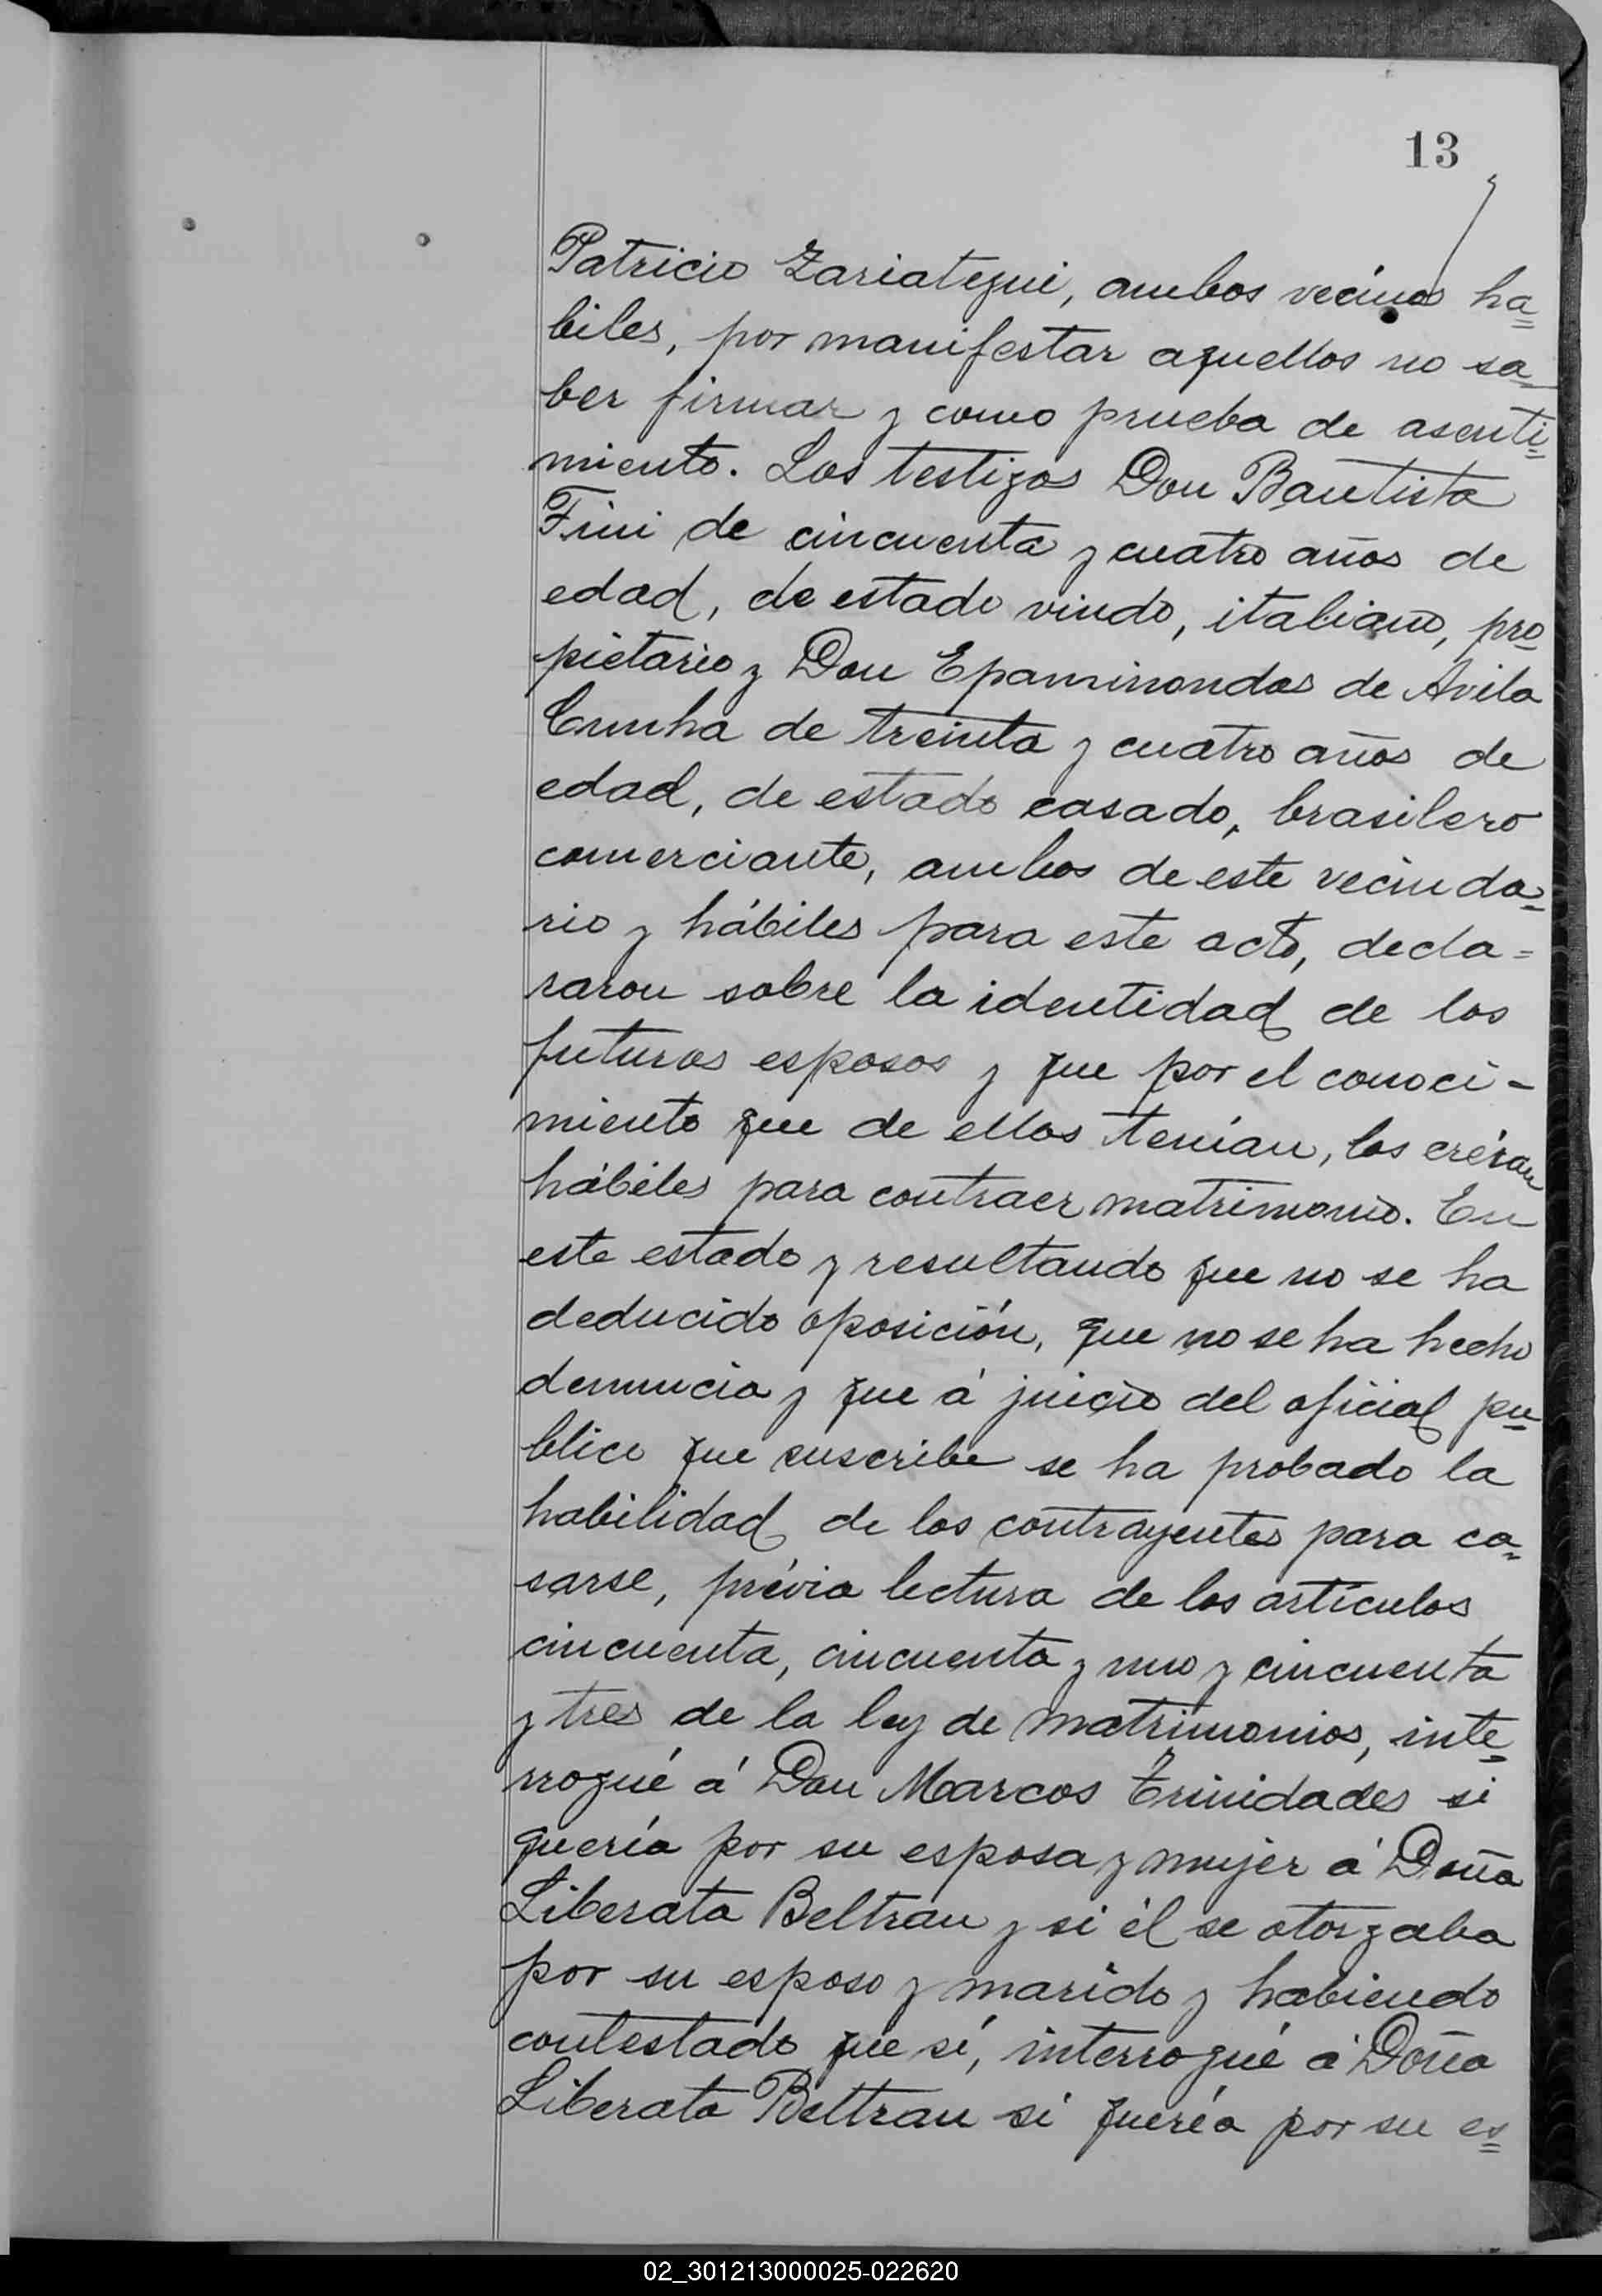 13
Patricio Zariategui, ambos vecinos ha=
biles, por manifestar aquellos no sa=
ber firmar y como prueba de asenti=
miento. Los testigos Don Bautista
Fini de cincuenta y cuatro años de
edad, de estado viudo, italiano, pro=
pietario y Don Epaminondas de Avila
Cunha de treinta y cuatro años de
edad, de estado casado, brasilero
comerciante, ambos de este vecinda=
rio y hábiles para este acto, decla=
raron sobre la identidad de los
futuros esposos y que por el conoci-
miento que de ellos tenían, los creían
hábiles para contraer matrimonio. En
este estado y resultando que no se ha
deducido oposición, que no se ha hecho
denuncia y que á juicio del oficial pu=
blico que suscribe se ha probado la
habilidad de los contrayentes para ca=
sarse, prévia lectura de los artículos
cincuenta, cincuenta y uno y cincuenta
y tres de la ley de matrimonios, inte=
rrogué á Don Marcos Trinidades si
quería por su esposa y mujer á Doña
Liberata Beltran y si él se otorgaba
por su esposo y marido y habiendo
contestado que sí, interrogué á Doña
Liberata Beltran si quería por su es=
02_301213000025-022620